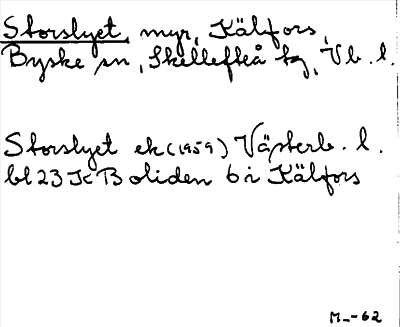 Storslyet, myr, Kälfors,
Byske sn, Skellefteå tg, Vb. l.
Storslyet ek (1959) Västerb. l.
bl 23 K Boliden 6 i Kälfors
M_-62